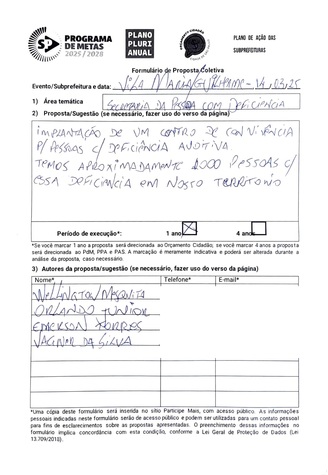 PROGRAMA
DE METAS
2025 / 2028
PLANO
PLURI
ANUAL
PLANO DE AÇÃO DAS
SUBPREFEITURAS
Formulário de Proposta Coletiva
Evento/Subprefeitura e data: VILA MARIA/GUILHERME - 14/03/25
1) Área temática
SECRETARIA DA PESSOA COM DEFICIÊNCIA
2) Proposta/Sugestão (se necessário, fazer uso do verso da página)
IMPLANTAÇÃO DE UM CENTRO DE CONVIVÊNCIA
P/ PESSOAS C/ DEFICIÊNCIA AUDITIVA
TEMOS APROXIMADAMENTE 1000 PESSOAS C/
ESSA DEFICIÊNCIA EM NOSSO TERRITÓRIO
Período de execução*: 1 ano 4 anos
*Se você marcar 1 ano a proposta será direcionada ao Orçamento Cidadão, se você marcar 4 anos a proposta
será direcionada ao PdM, PPA e PAS. A marcação é meramente indicativa e poderá ser alterada durante a
análise da proposta, caso necessário.
3) Autores da proposta/sugestão (se necessário, fazer uso do verso da página)
Nome* Telefone* E-mail*
WELLINGTON MESQUITA
ORLANDO JUNIOR
EMERSON TORRES
DA SILVA
*Uma cópia deste formulário será inserida no sítio Participe Mais, com acesso público. As informações
pessoais indicadas neste formulário serão de acesso público e podem ser utilizadas para um contato pessoal
para fins de esclarecimentos sobre as propostas apresentadas. O preenchimento dessas informações no
formulário implica concordância com esta condição, conforme a Lei Geral de Proteção de Dados (Lei
13.709/2018).